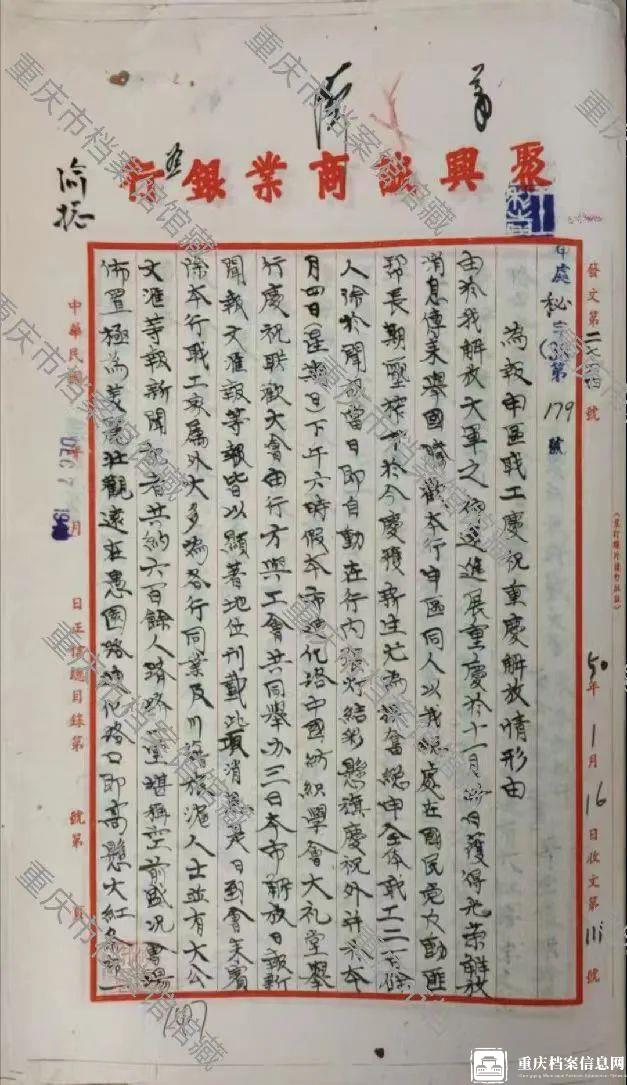 聚興誠商業銀行
發文第 號
申處秘字第179號
50年1月16日收文第 號
為報申區職工慶祝重慶解放情形由
由於我解放大軍之迅速進展重慶於十一月 日獲得光榮解放
消息傳來舉國騰歡本行申區同人以我總處在國民党反動匪
幫長期壓榨下於今慶獲新生尤為振奮總申全体職工二百餘
人除於聞 當日即自動在行内張灯結彩懸旗慶祝外并於本
月四日(星期日)下午六時假本市 化路中國紡織學會大礼堂舉
行慶祝聯歡大會由行方與工會共同舉办三日本市解放日報新
聞報文滙報等報皆以顯著地位刊載此項消息是日到會来賓
除本行職工家属外大多為各行同業及川 旅滬人士並有大公
文滙等報新聞記者共約六百餘人躋 一堂堪稱空前盛況會場
佈置極為美麗壯觀遠在愚園路 化路口即高懸大紅
中華民國 年 月 日正信總目錄第 號第 頁
DEC 7
重庆市档案馆馆藏
重庆档案信息网